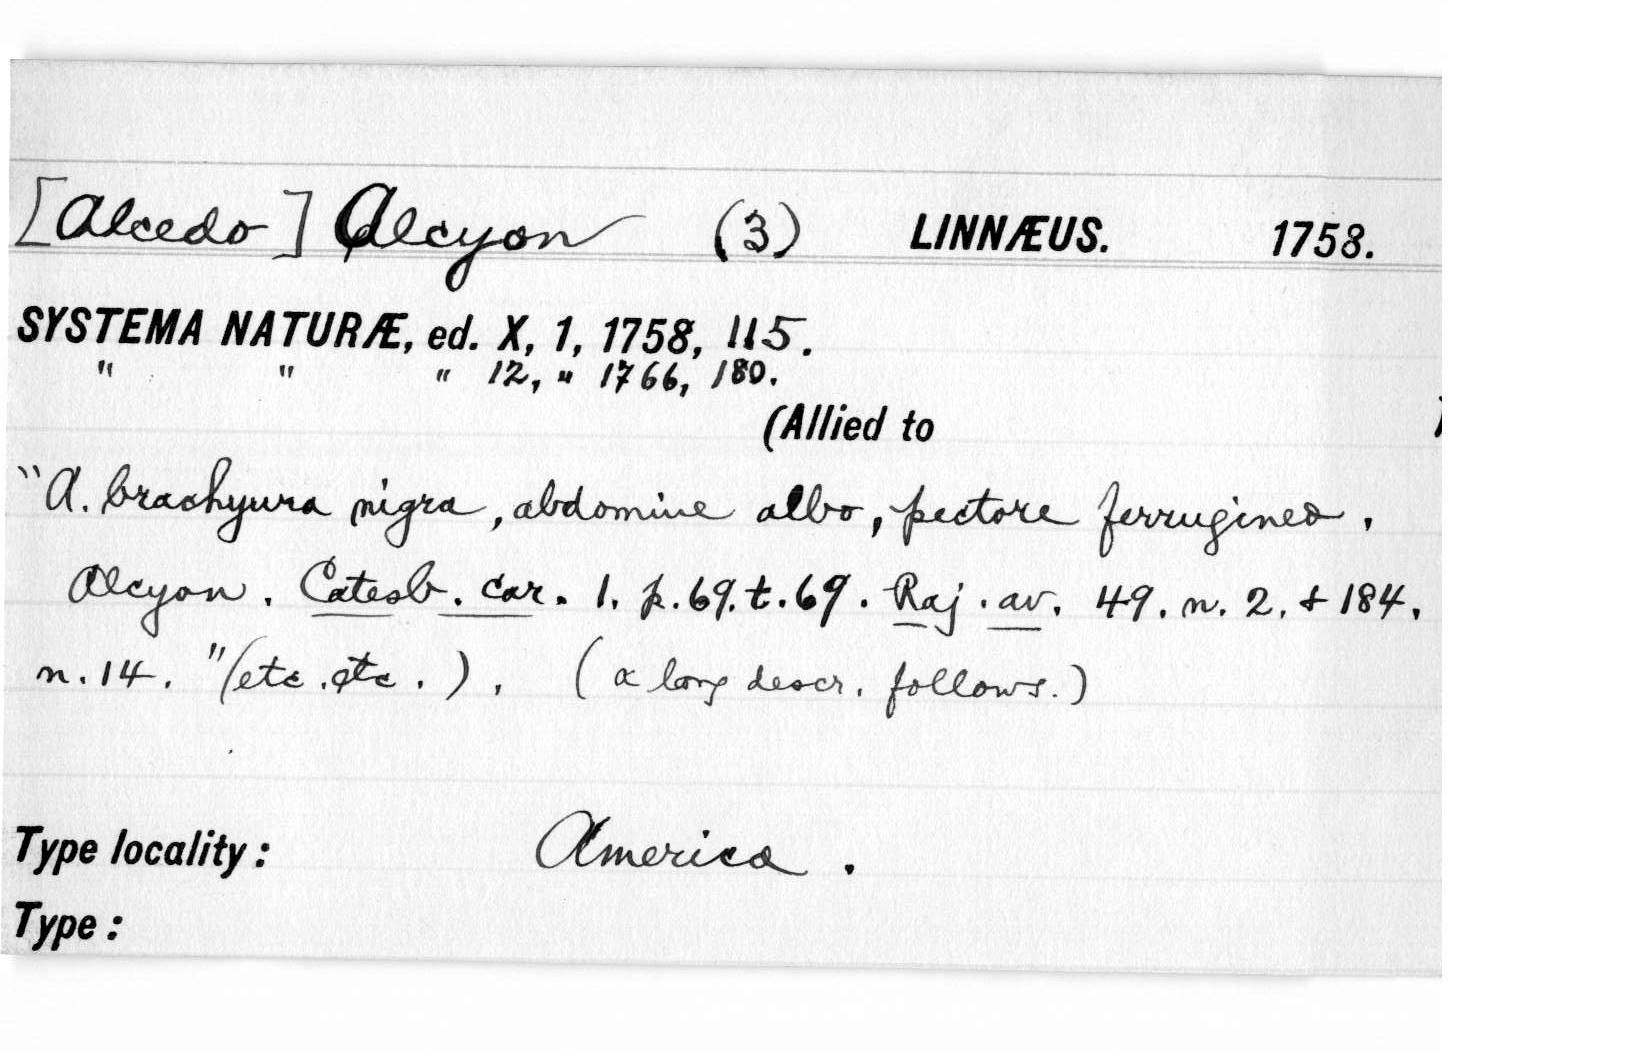 [Alcedo] Alcyon (3) LINNÆUS. 1758.
SYSTEMA NATURÆ, ed. X, 1, 1758, 115.
" " " 12, " 1766, 180.
(Allied to )
"A. brachyura nigra, abdomine albo, pectore ferrugineo.
Alcyon. Catesb. car. 1. p. 69. t. 69. Raj. av. 49. n. 2. & 184.
n. 14. "(etc. etc.). (a long descr. follows.)
Type locality: America.
Type: